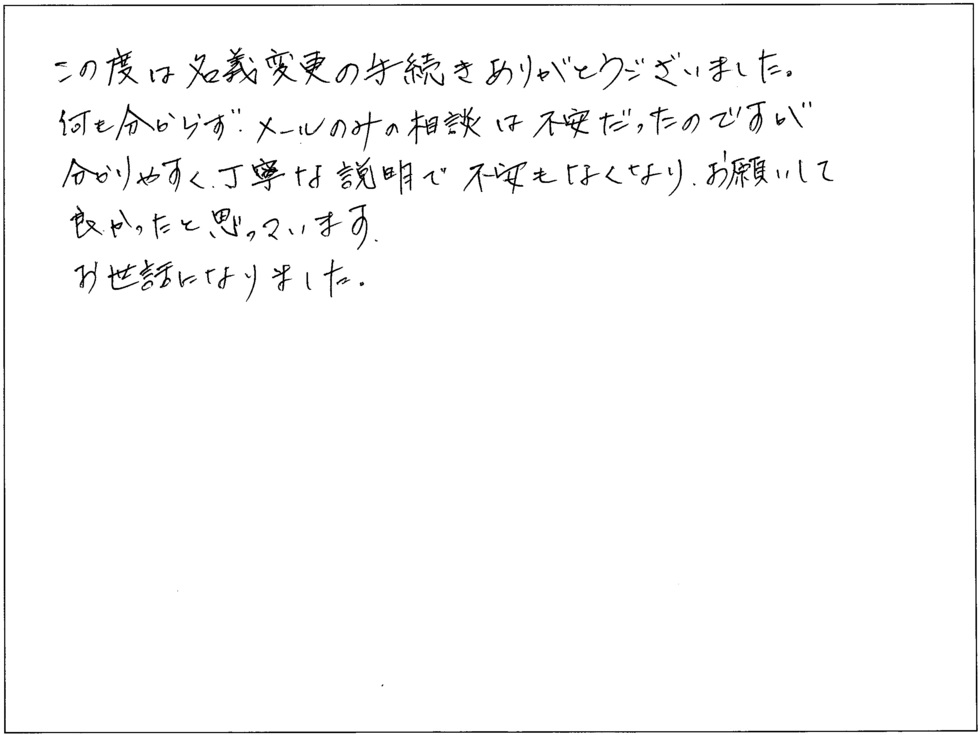 この度は名義変更の手続きありがとうございました。
何も分からず、メールのみの相談は不安だったのですが
分かりやすく、丁寧な説明で不安もなくなり、お願いして
良かったと思っています。
お世話になりました。